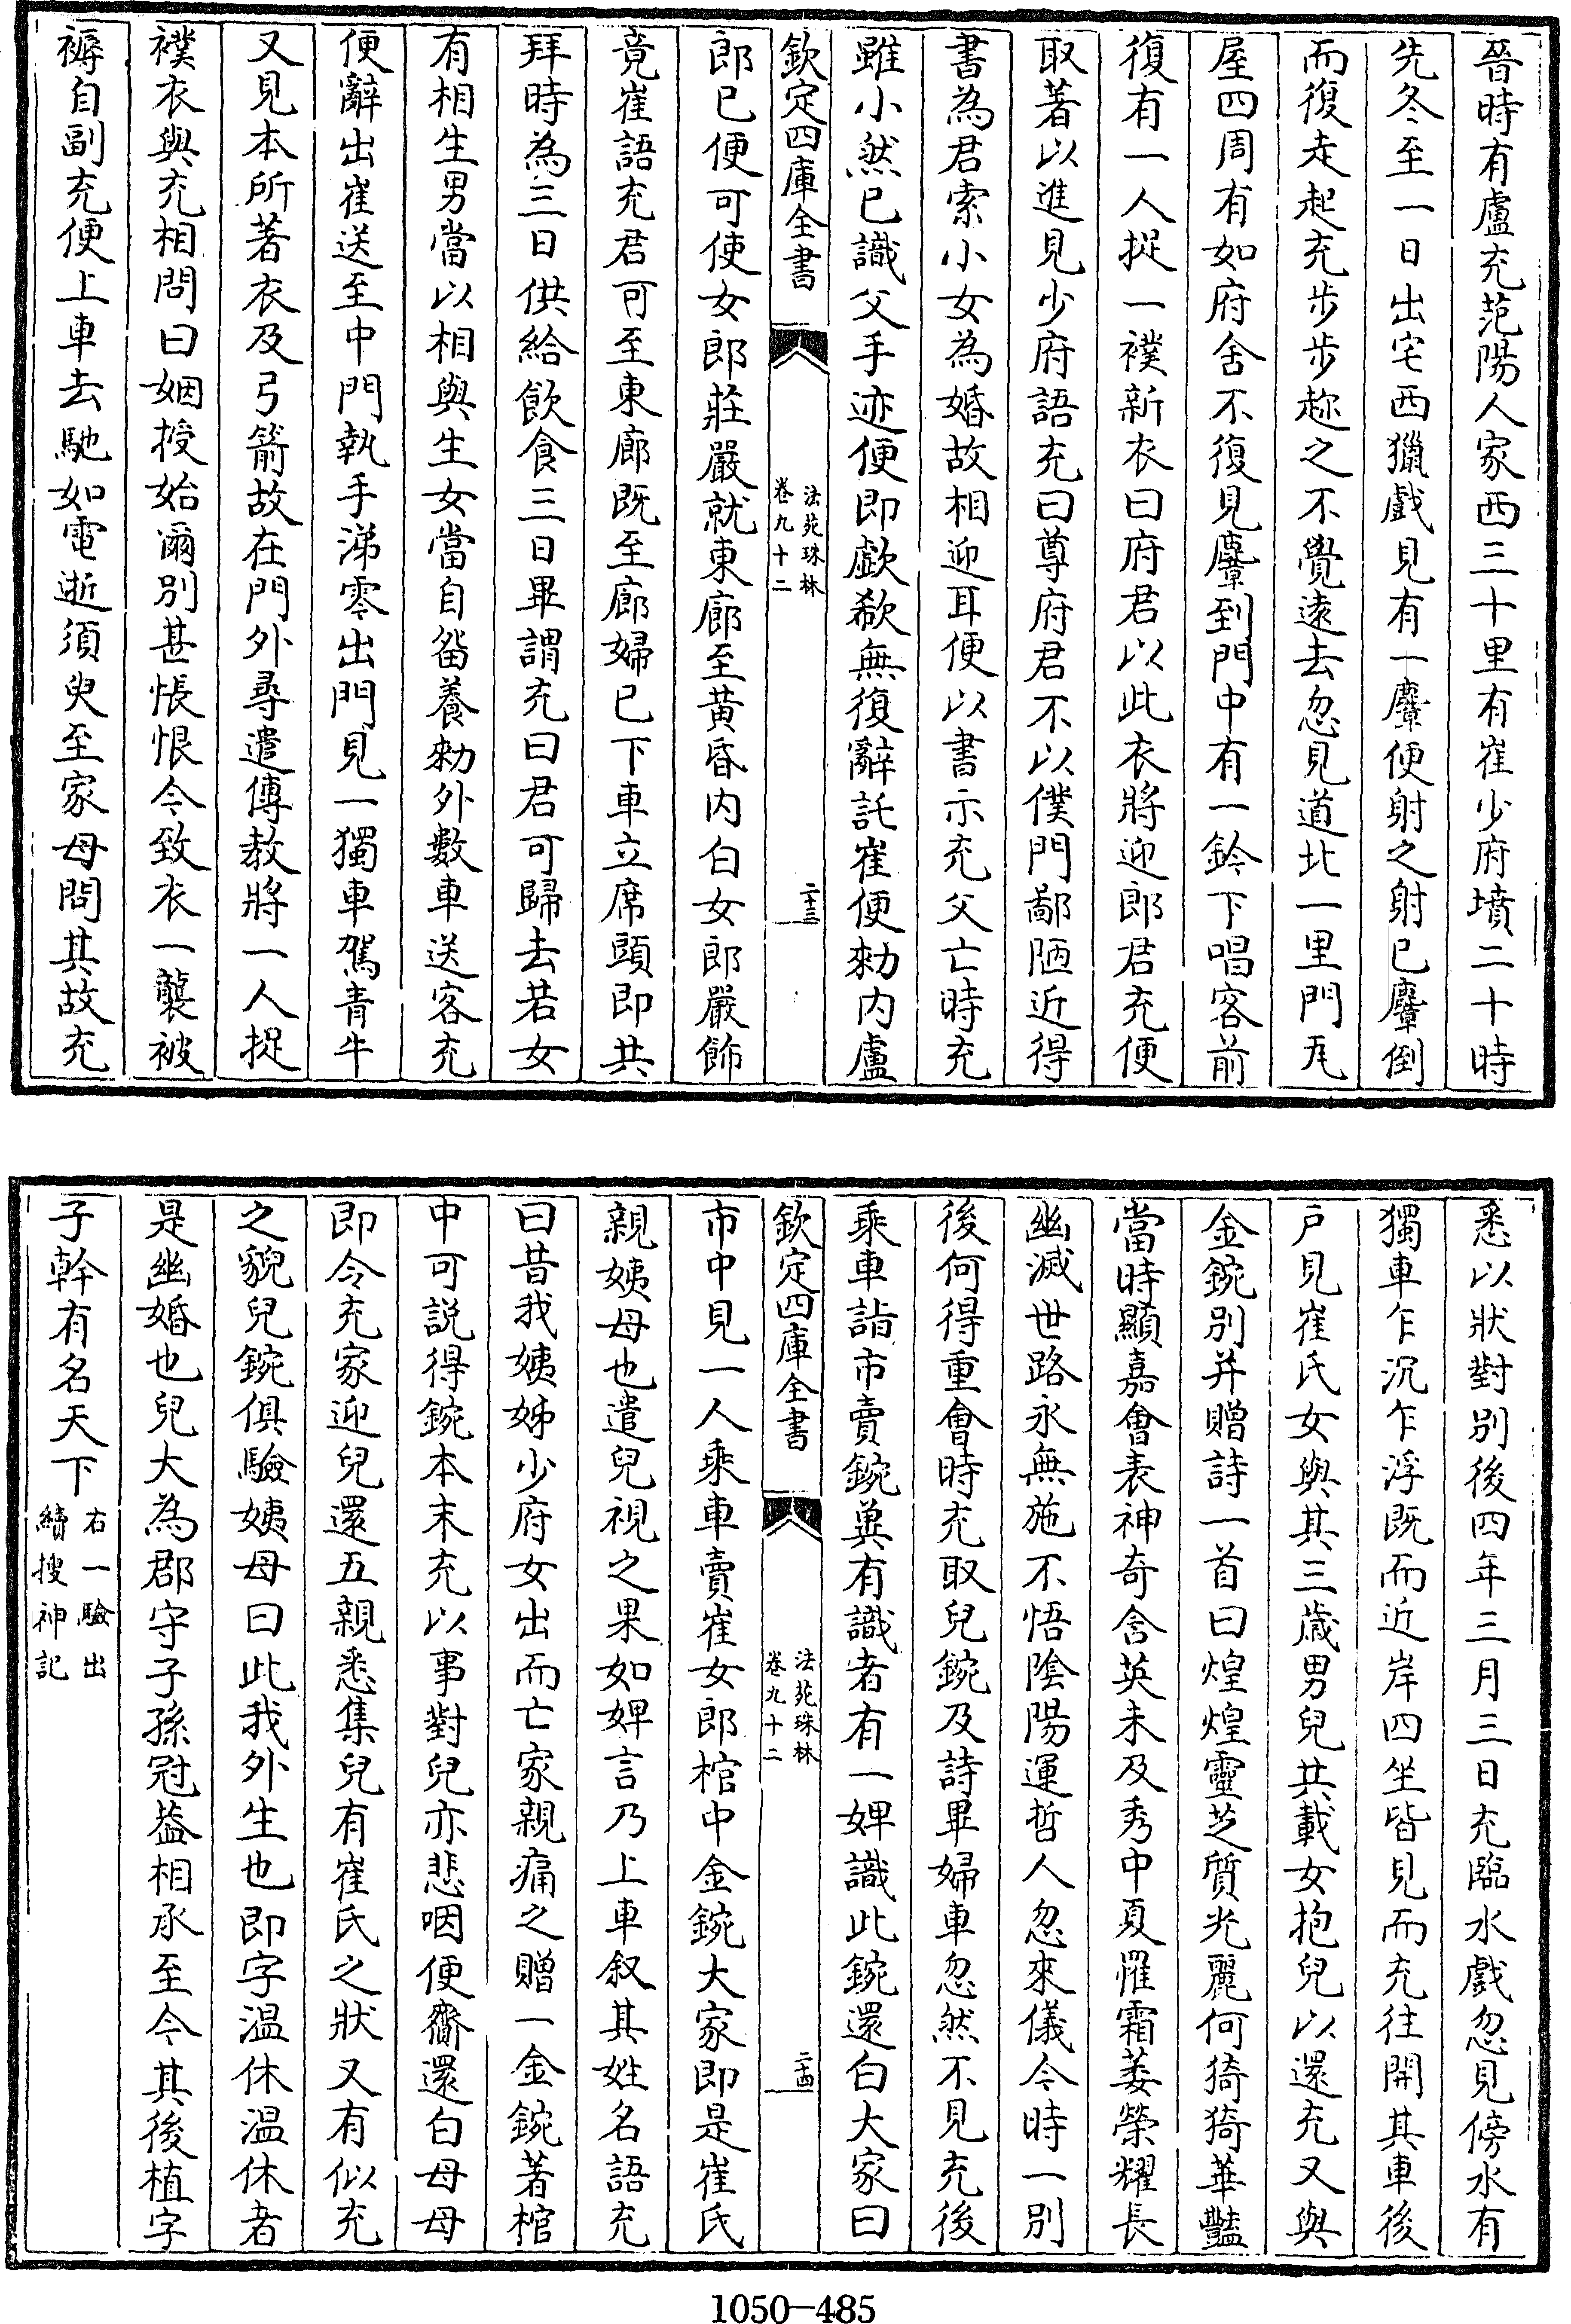 晉時有盧充范陽人家西三十里有崔少府墳二十時
先冬至一日出宅西獵戲見有一麞便射之射已麞倒
而復走起充步步趂之不覺遠去忽見道北一里門瓦
屋四周有如府舍不復見麞到門中有一鈴下唱客前
復有一人捉一襆新衣曰府君以此衣將迎郎君充便
取著以進見少府語充曰尊府君不以僕門鄙陋近得
書為君索小女為婚故相迎耳便以書示充父亡時充
雖小然已識父手迹便即歔欷無復辭託崔便勑内盧
欽定四庫全書
法苑珠林
卷九十二
二十三
郎已便可使女郎莊嚴就東廊至黄昏内白女郎嚴飾
竟崔語充君可至東廊既至廊婦已下車立席頭即共
拜時為三日供給飲食三日畢謂充曰君可歸去若女
有相生男當以相與生女當自留養勑外數車送客充
便辭出崔送至中門執手涕零出門見一獨車駕青牛
又見本所著衣及弓箭故在門外尋遣傳教將一人捉
襆衣與充相問曰姻授始爾别甚悵恨今致衣一襲被
褥自副充便上車去馳如電逝須臾至家母問其故充
悉以狀對别後四年三月三日充臨水戲忽見傍水有
獨車乍沉乍浮既而近岸四坐皆見而充往開其車後
户見崔氏女與其三歲男兒共載女抱兒以還充又與
金鋺别并贈詩一首曰煌煌靈芝質光麗何猗猗華豔
當時顯嘉會表神奇含英未及秀中夏罹霜萎榮耀長
幽滅世路永無施不悟陰陽運哲人忽來儀今時一别
後何得重會時充取兒鋺及詩畢婦車忽然不見充後
乘車詣市賣鋺兾有識者有一婢識此鋺還白大家曰
欽定四庫全書
法苑珠林
卷九十二
二十四
市中見一人乘車賣崔女郎棺中金鋺大家即是崔氏
親姨母也遣兒視之果如婢言乃上車叙其姓名語充
曰昔我姨姊少府女出而亡家親痛之贈一金鋺著棺
中可説得鋺本末充以事對兒亦悲咽便齎還白母母
即令充家迎兒還五親悉集兒有崔氏之狀又有似充
之貌兒鋺俱驗姨母曰此我外生也即字温休温休者
是幽婚也兒大為郡守子孫冠葢相承至今其後植字
子幹有名天下
右一驗出
續搜神記
1050—485